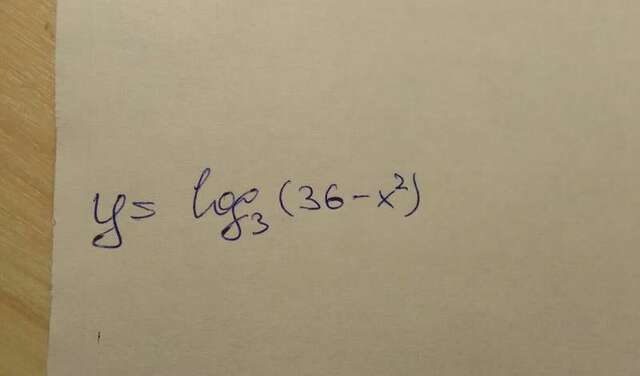 y = log₃(36 - x²)